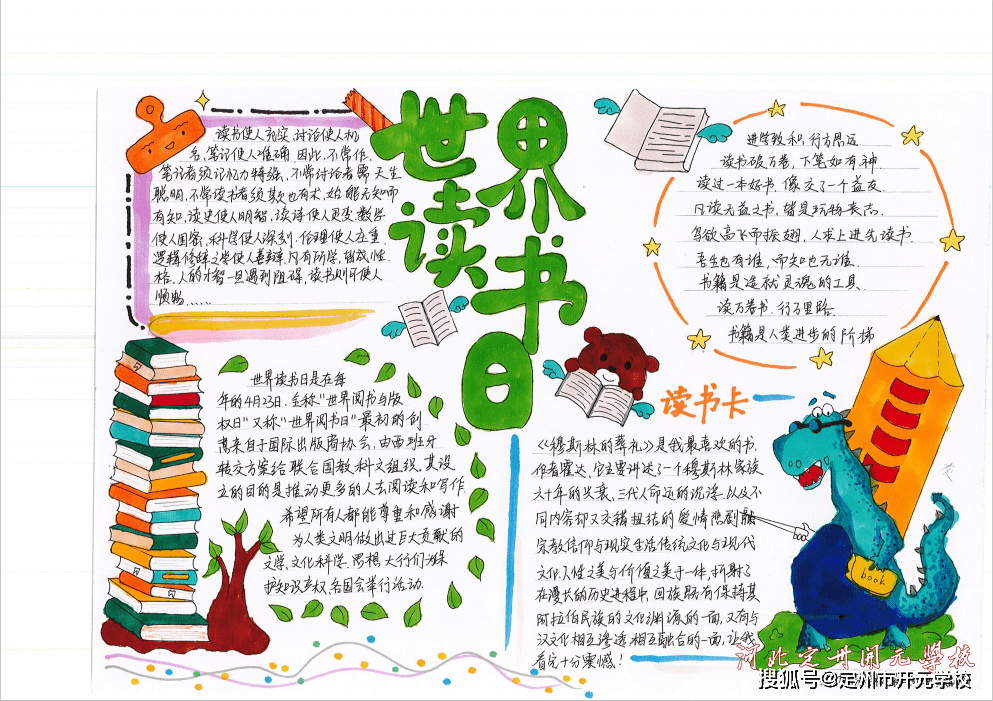 世界读书日
读书使人充实,讨论使人机
笔记使人准确.因此,不常作
笔记者须记忆力特强,不常讨论者需天生
聪明,不常读书者须欺世有术,始能无知而
有知,读史使人明智,读诗使人灵秀,数学
使人周密,科学使人深刻.伦理使人庄重.
逻辑修辞之学使人善辩.凡有所学,皆成性
格.人的才智一旦遇到阻碍,读书则可使人
顺畅.....
进学致和,行方思远
读书破万卷,下笔如有神.
读过一本好书.像交了一个益友.
凡读无益之书,皆是玩物丧志.
鸟欲高飞而振翅,人求上进先读书.
吾生也有涯,而知也无涯.
书籍是造就灵魂的工具.
读万卷书.行万里路.
书籍是人类进步的阶梯
世界读书日是在每
年的4月23日.全称"世界图书与版
权日"又称"世界图书日"最初的创
意来自于国际出版商协会,由西班牙
转交方案给联合国教科文组织.其设
立的目的是推动更多的人去阅读和写作
希望所有人都能尊重和感谢
为人类文明做出过巨大贡献的
文学.文化科学.思想大行们为保
护知识产权.各国会举行活动.
读书卡
《穆斯林的葬礼》是我最喜欢的书.
作者霍达.它主要讲述了一个穆斯林家族
六十年的兴衰,三代人命运的沉浮.以及不
同内容却又交错扭结的爱情悲剧.融
宗教信仰与现实生活传统文化与现代
文化.人性之美与价值之美于一体,折射了
在漫长的历史进程中,回族既有保持其
阿拉伯民族的文化渊源的一面,又有与
汉文化相互渗透相互融合的一面,让我
首先十分震憾!
book
河北定州开元学校
搜狐号@定州市开元学校